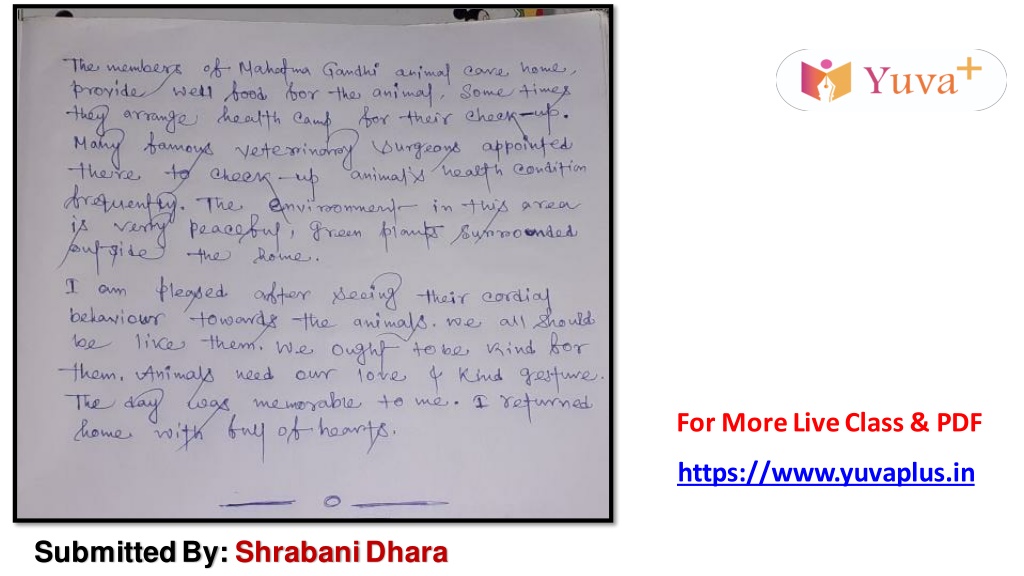 The members of Mahatma Gandhi animal care home,
provide well food for the animal. Some times
they arrange health camp for their check-up.
Many famous veterinary surgeons appointed
there to check-up animal's health condition
frequently. The environment in this area
is very peaceful, green plants surrounded
outside the home.
I am pleased after seeing their cordial
behaviour towards the animals. We all should
be like them. We ought to be kind for
them. Animals need our love & kind gesture.
The day was memorable to me. I returned
home with full of hearts.
Yuva+
For More Live Class & PDF
https://www.yuvaplus.in
Submitted By: Shrabani Dhara